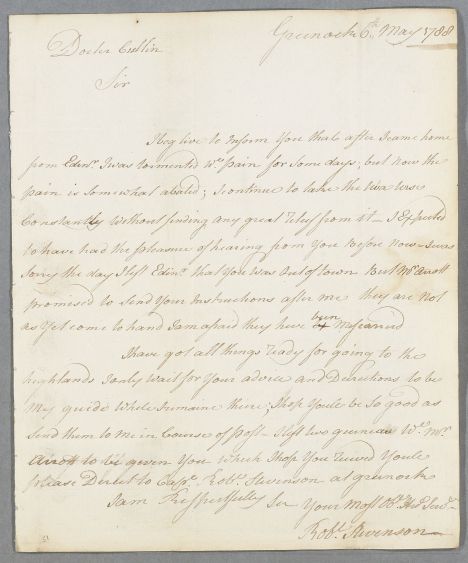 Greenock 6th May 1788
Doctor Cullin
Sir
I beg live to Inform You that after I came home
from Edinr. I was tormented wt. pain for Some days; but now the
pain is Somewhat abated; I continue to take the
Constantly without finding any great relief from it - I Expected
to have had the pleasure of hearing from You Before Now - I was
Sorey the day I left Edinr. that You was Out of town But Mr. Arrott
promised to Send Your Instructions after me they are Not
as Yet come to hand I am afraid they have been Miscaried
I have got all things ready for going to the
highlands I only wait for Your advice and Directions to be
My guide While I remaine there; I hope Youle be So good as
Send them to me in Course of post - I left two guineas Wt. Mr.
Arrott to be given You which I hope You receved Youle
please Direct to Capt. Robt. Stevenson at greenock
I am Respectfully Sir Your Most Obt. Hue. Servt.
Robt. Stevenson